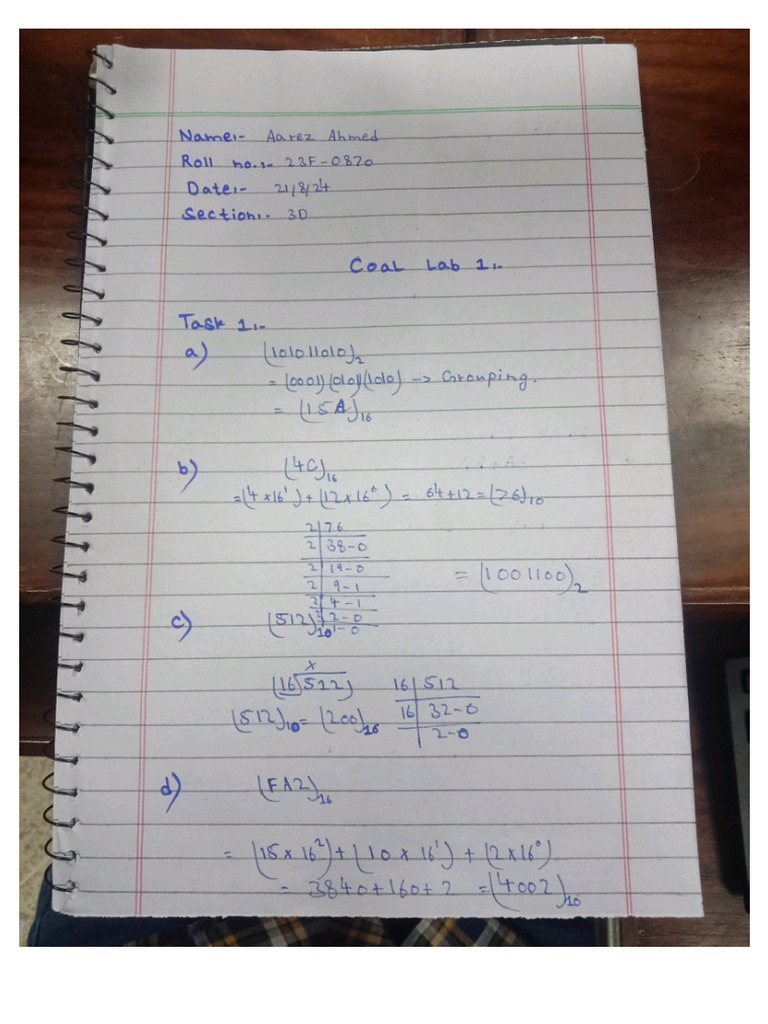 Name:- Aarez Ahmed
Roll no.:- 23F-0870
Date:- 21/8/24
Section:- 3D
Coal Lab 1:-
Task 1:-
a) (101011010)₂
= (0001)(0101)(1010) → Grouping.
= (15A)₁₆
b) (4C)₁₆
= (4×16¹)+(12×16⁰) = 64+12 = (76)₁₀
2|76
2|38-0
2|19-0
2|9-1
2|4-1
2|2-0
1-0
= (1001100)₂
c) (512)₁₀
x
(16)512)
16|512
16|32-0
2-0
(512)₁₀ = (200)₁₆
d) (FA2)₁₆
= (15×16²)+(10×16¹)+(2×16⁰)
= 3840+160+2 = (4002)₁₀